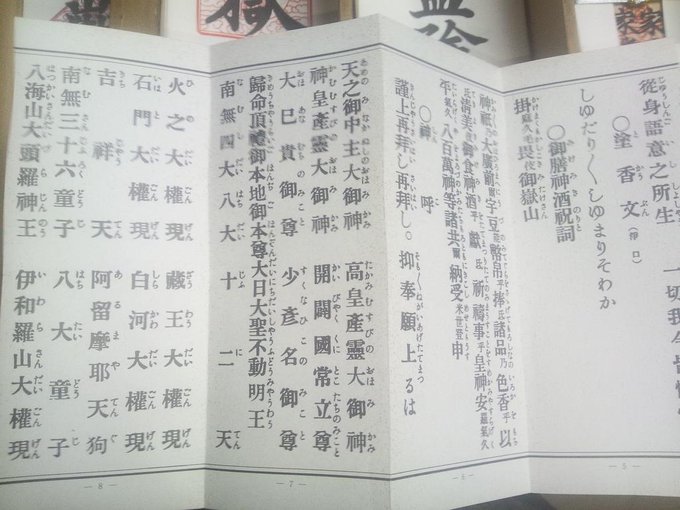 從身語意之所生 一切我今皆
○塗香文
しゆだり〱しゆまりそわか
○御膳神酒祝詞
掛麻久毛畏伎御嶽山
― 5 ―
神祇乃大廣前爾宇豆乃幣帛乎捧氐諸品乃色香乎以
氐清美乃御食神酒乎獻氐祈禱事乎皇神安羅氣久
平氣久八百萬神等諸共爾納受米世登申
○神呼
謹上再拜し再拜し。抑奉願上るは
― 6 ―
天之御中主大御神 高皇產靈大御神
神皇產靈大御神 開闢國常立尊
大己貴御尊 少彥名御尊
歸命頂禮御本地御本尊大日大聖不動明王
南無四大八大十二天
― 7 ―
火之大權現 藏王大權現
石門大權現 白河大權現
吉祥天 阿留摩耶天狗
南無三十六童子 八大童子
八海山大頭羅神王 伊和羅山大權現
― 8 ―